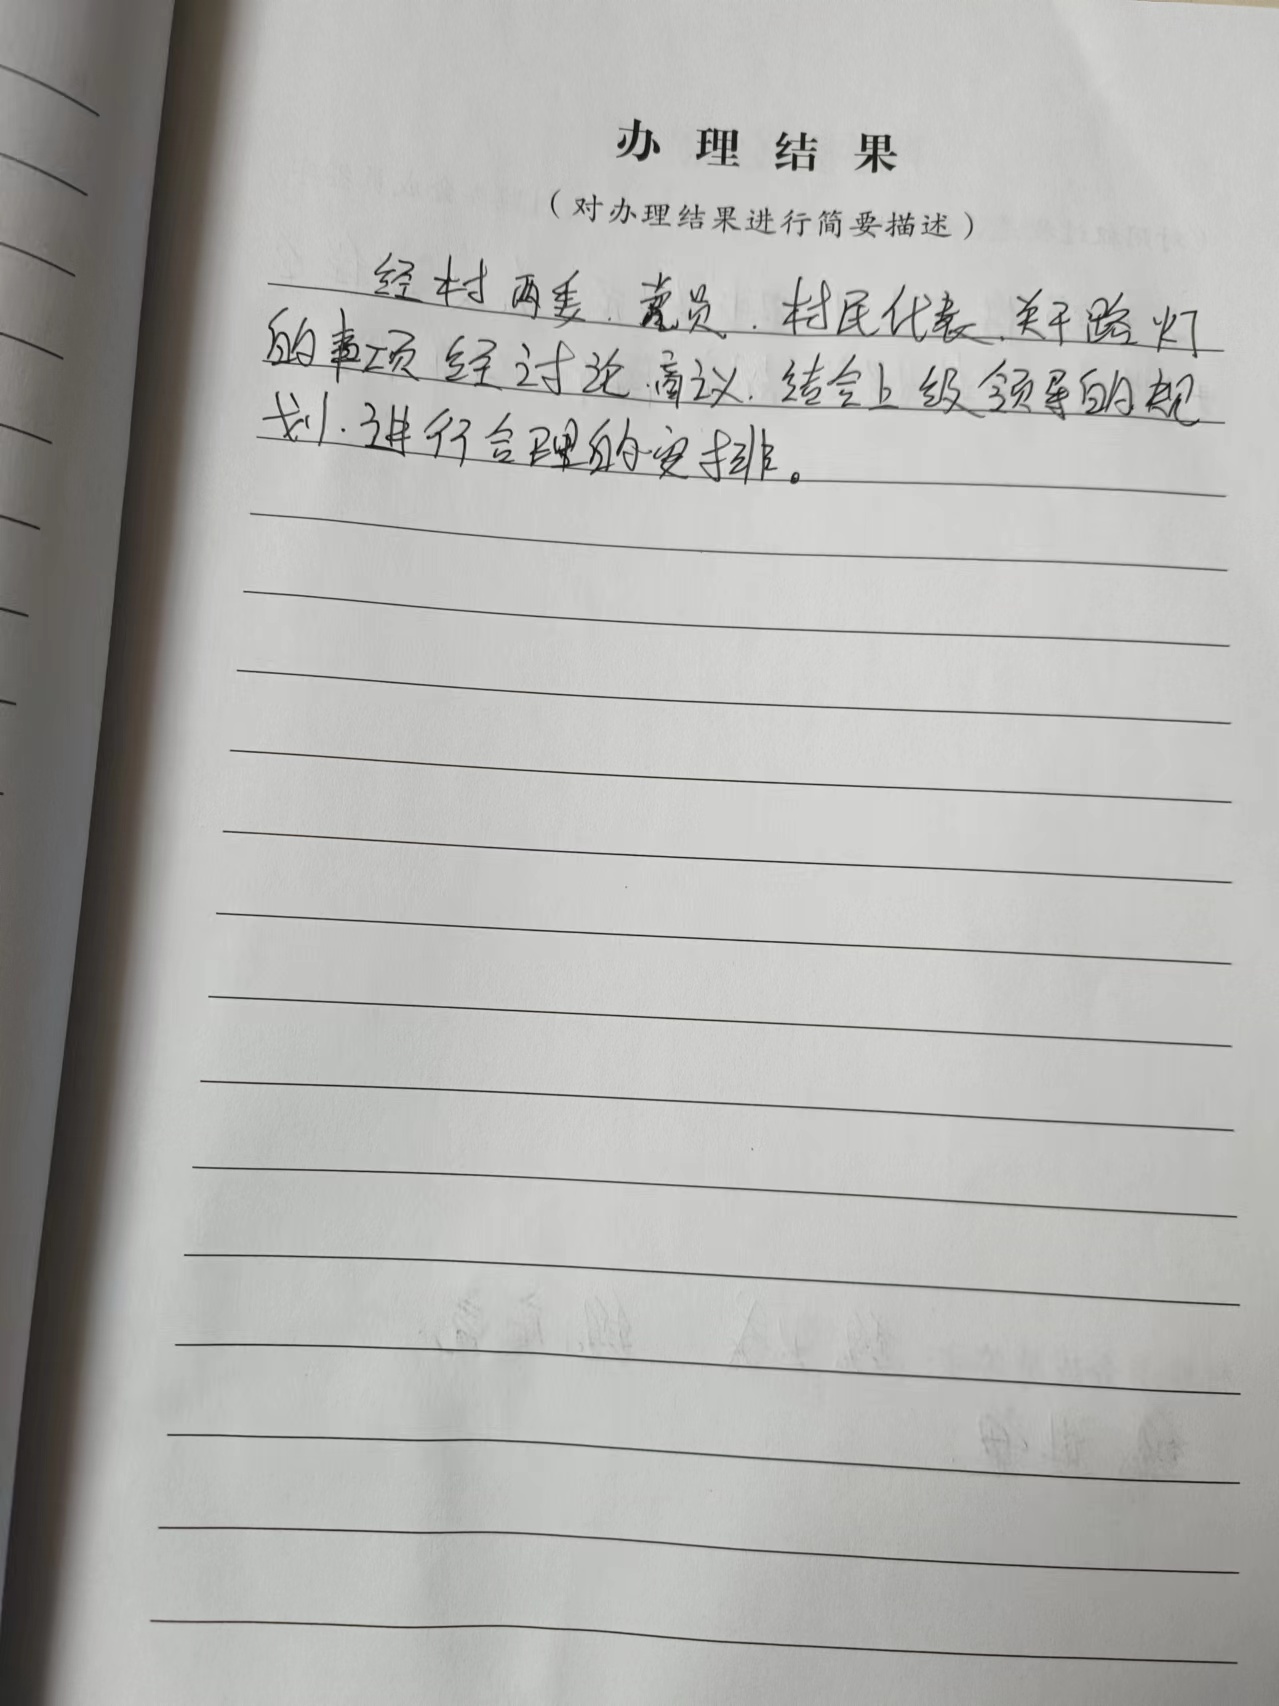 办理结果
（对办理结果进行简要描述）
经村两委、党员、村民代表、关于路灯
的事项经讨论、商议、结合上级领导的规
划、进行合理的安排。